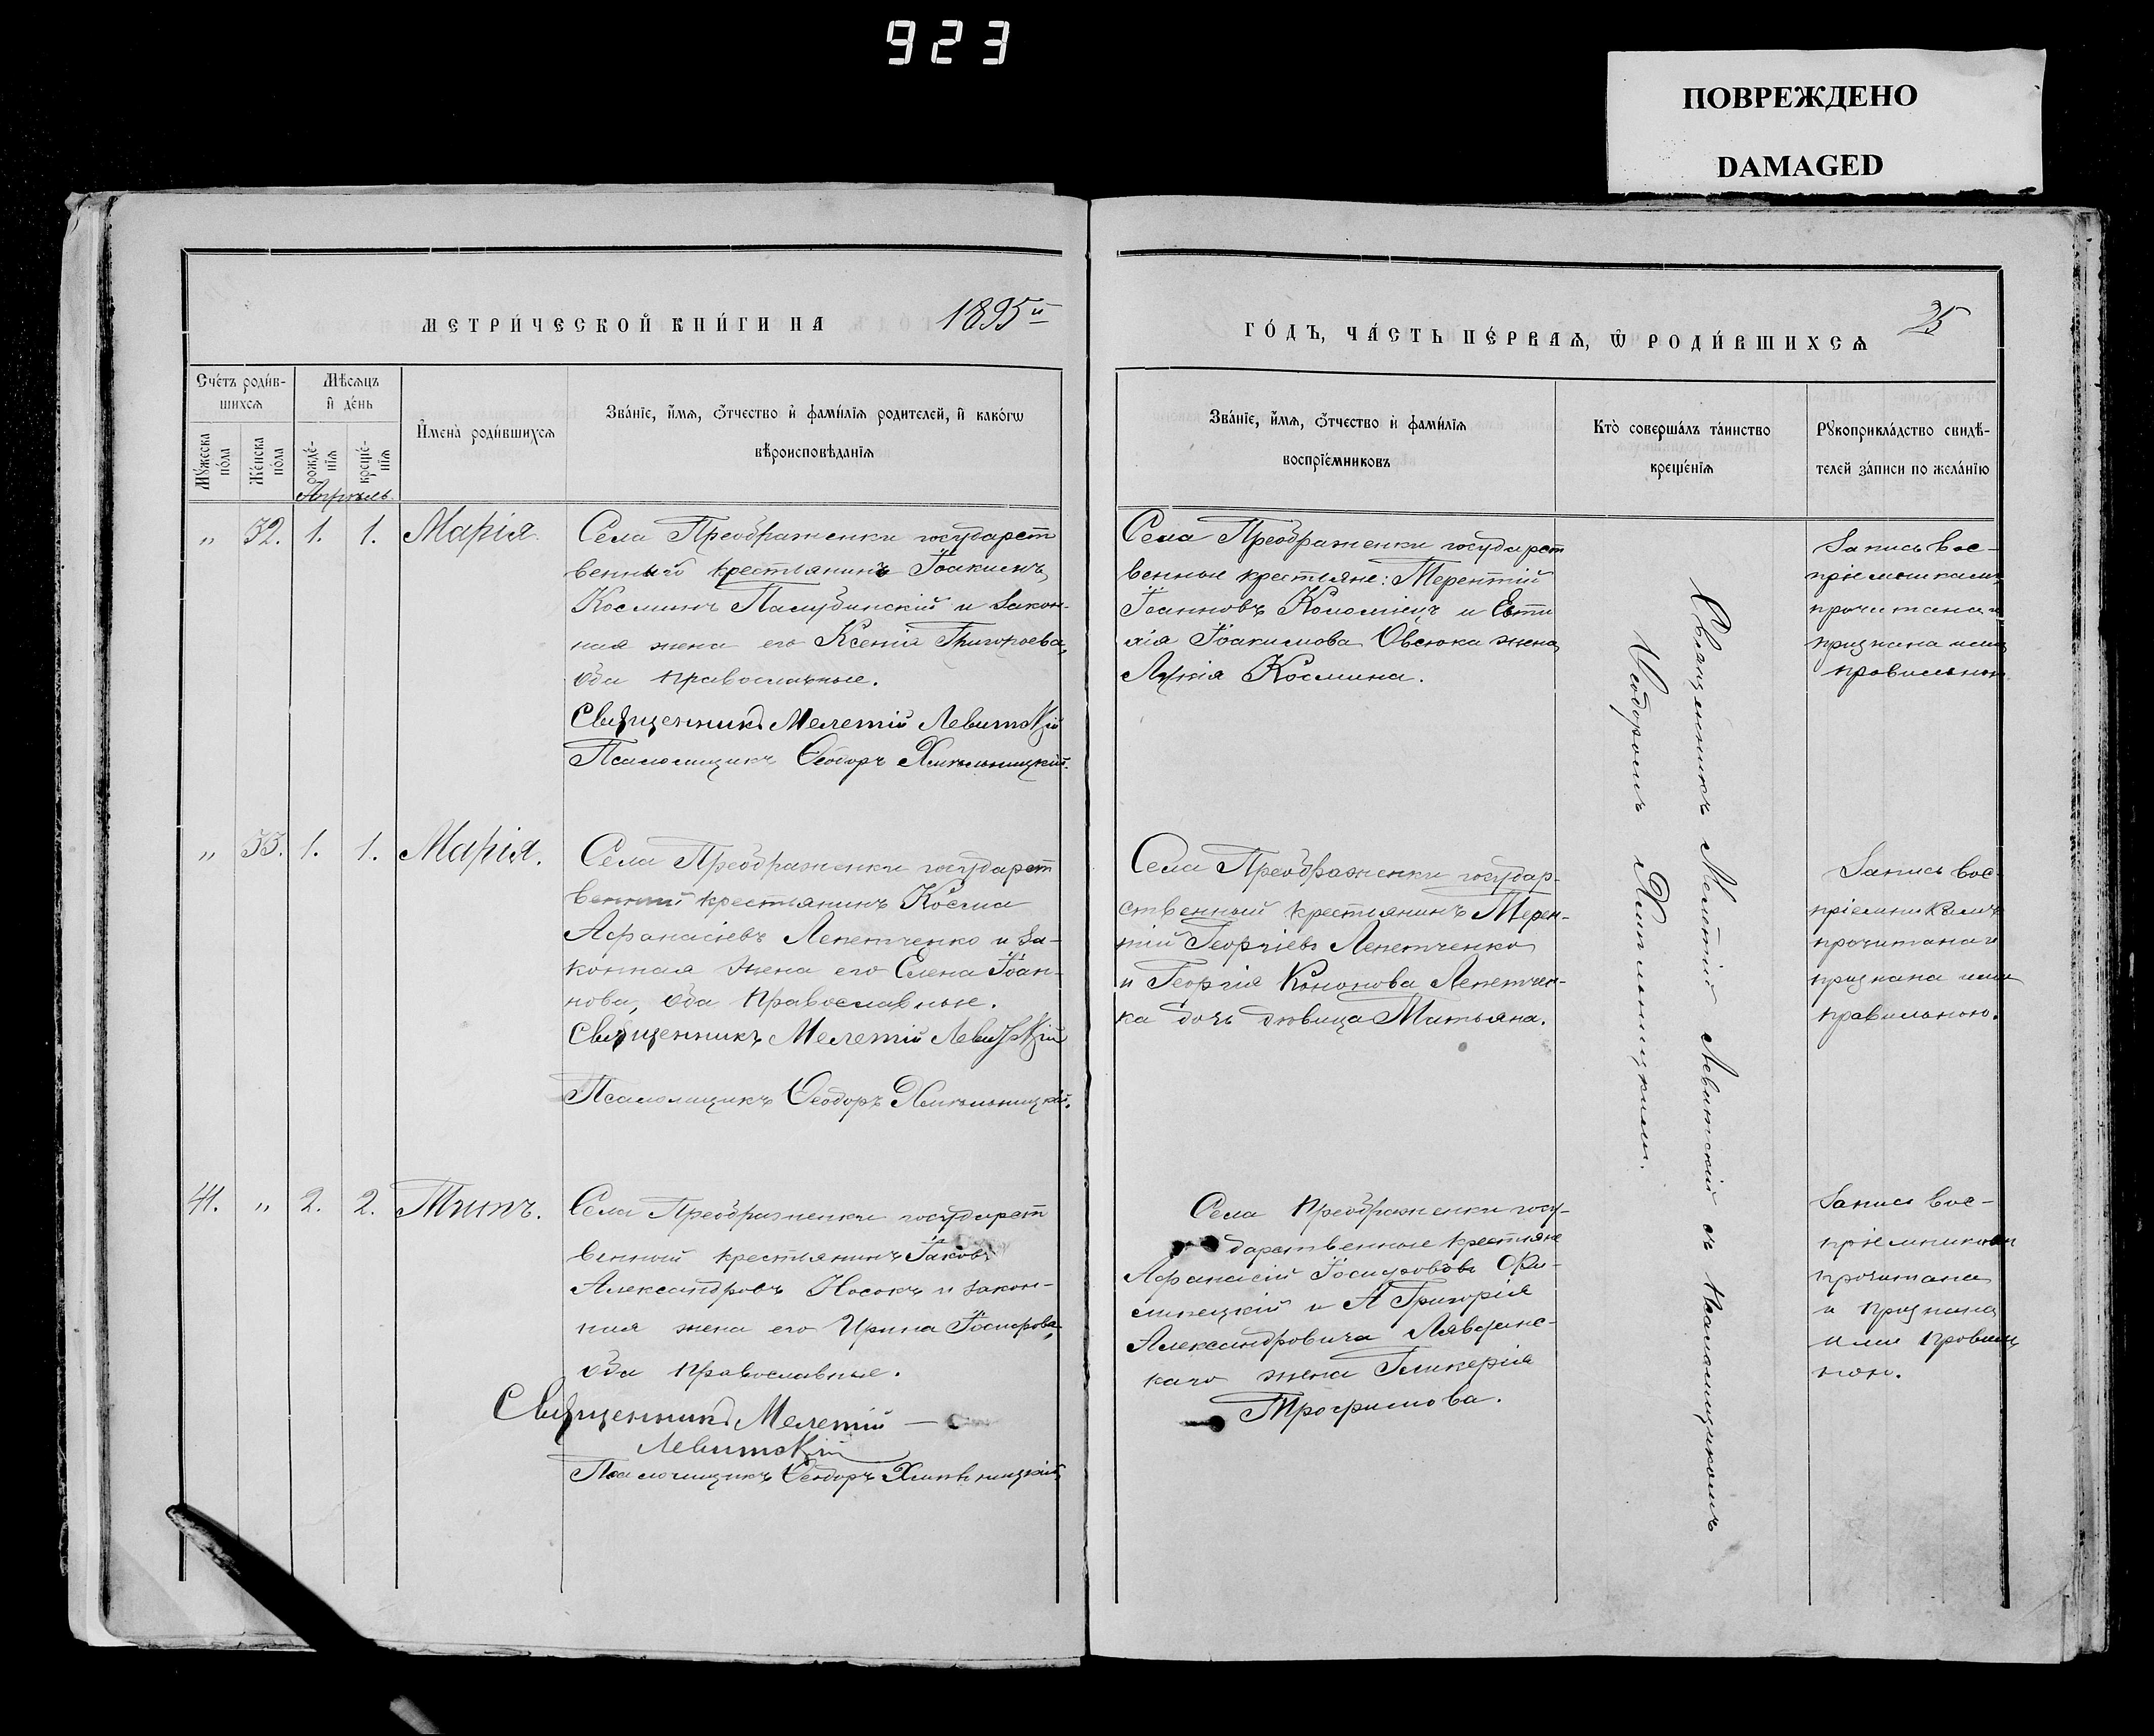 923
ПОВРЕЖДЕНО
DAMAGED
МЕТРИ́ЧЕСКОЙ КНИ́ГИ НА 1895й
ГО́ДЪ, ЧА́СТЬ ПЕ́РВАѦ, Ѡ҆ РОДИ́ВШИХСѦ 25
Сче́тъ роди́в-
шихсѧ
Мꙋ́жеска
по́ла
Же́нска
по́ла
Мѣ́сѧцъ
и҆ де́нь
рожде́-
нїѧ
креще́-
нїѧ
И҆мена̀ роди́вшихсѧ
Зва́нїе, и҆́мѧ, ѻ҆́тчество и҆ фами́лїѧ родителей, и҆ како́гѡ
вѣроисповѣ́данїѧ
Зва́нїе, и҆́мѧ, ѻ҆́тчество и҆ фами́лїѧ
воспрїе́мниковъ
Кто̀ соверша́лъ та́инство
креще́нїѧ
Рꙋкоприкла́дство свидѣ́-
телей за́писи по жела́нїю
Апрѣль
„ 32. 1. 1. Марія.
Села Преображенки государст
венный крестьянинъ Іоакимъ
Косминъ Палубинскій и закон-
ная жена его Ксенія Григорьева,
оба православные.
Священникъ Мелетій Левитскій
Псаломщикъ Ѳеодоръ Хмѣльницкій.
Села Преображенки государст
венные крестьяне: Терентій
Іоанновъ Коломіецъ и Евти
хія Іоакимова Овсюка жена
Лукія Космина.
Запись вос-
пріемникамъ
прочитана и
признана ими
правильною
„ 33. 1. 1. Марія.
Села Преображенки государст
венный крестьянинъ Косма
Афанасіевъ Лепетченко и за-
конная жена его Елена Іоан-
нова, оба православные.
Священникъ Мелетій Левитскій
Псаломщикъ Ѳеодоръ Хмѣльницкій.
Села Преображенки государ-
ственный крестьянинъ Терен-
тій Георгіевъ Лепетченко
и Георгія Кононова Лепетчен-
ка дочь дѣвица Татьяна.
Запись вос-
пріемникамъ
прочитана и
признана ими
правильною.
41. „ 2. 2. Титъ.
Села Преображенки государст
венный крестьянинъ Іаковъ
Александровъ Носокъ и закон-
ная жена его Ирина Іосифова,
оба православные.
Священникъ Мелетій
Левитскій
Псаломщикъ Ѳеодоръ Хмѣльницкій
Села Преображенки госу-
дарственные крестьяне
Афанасій Іосифовъ
и Григорія
Александровича
каго жена Гликерія
Трофимова.
Запись вос-
пріемниками
прочитана
и признана
ими правиль
ною.
Священникъ Мелетій Левитскій съ псаломщикомъ
Ѳеодоромъ Хмѣльницкимъ.